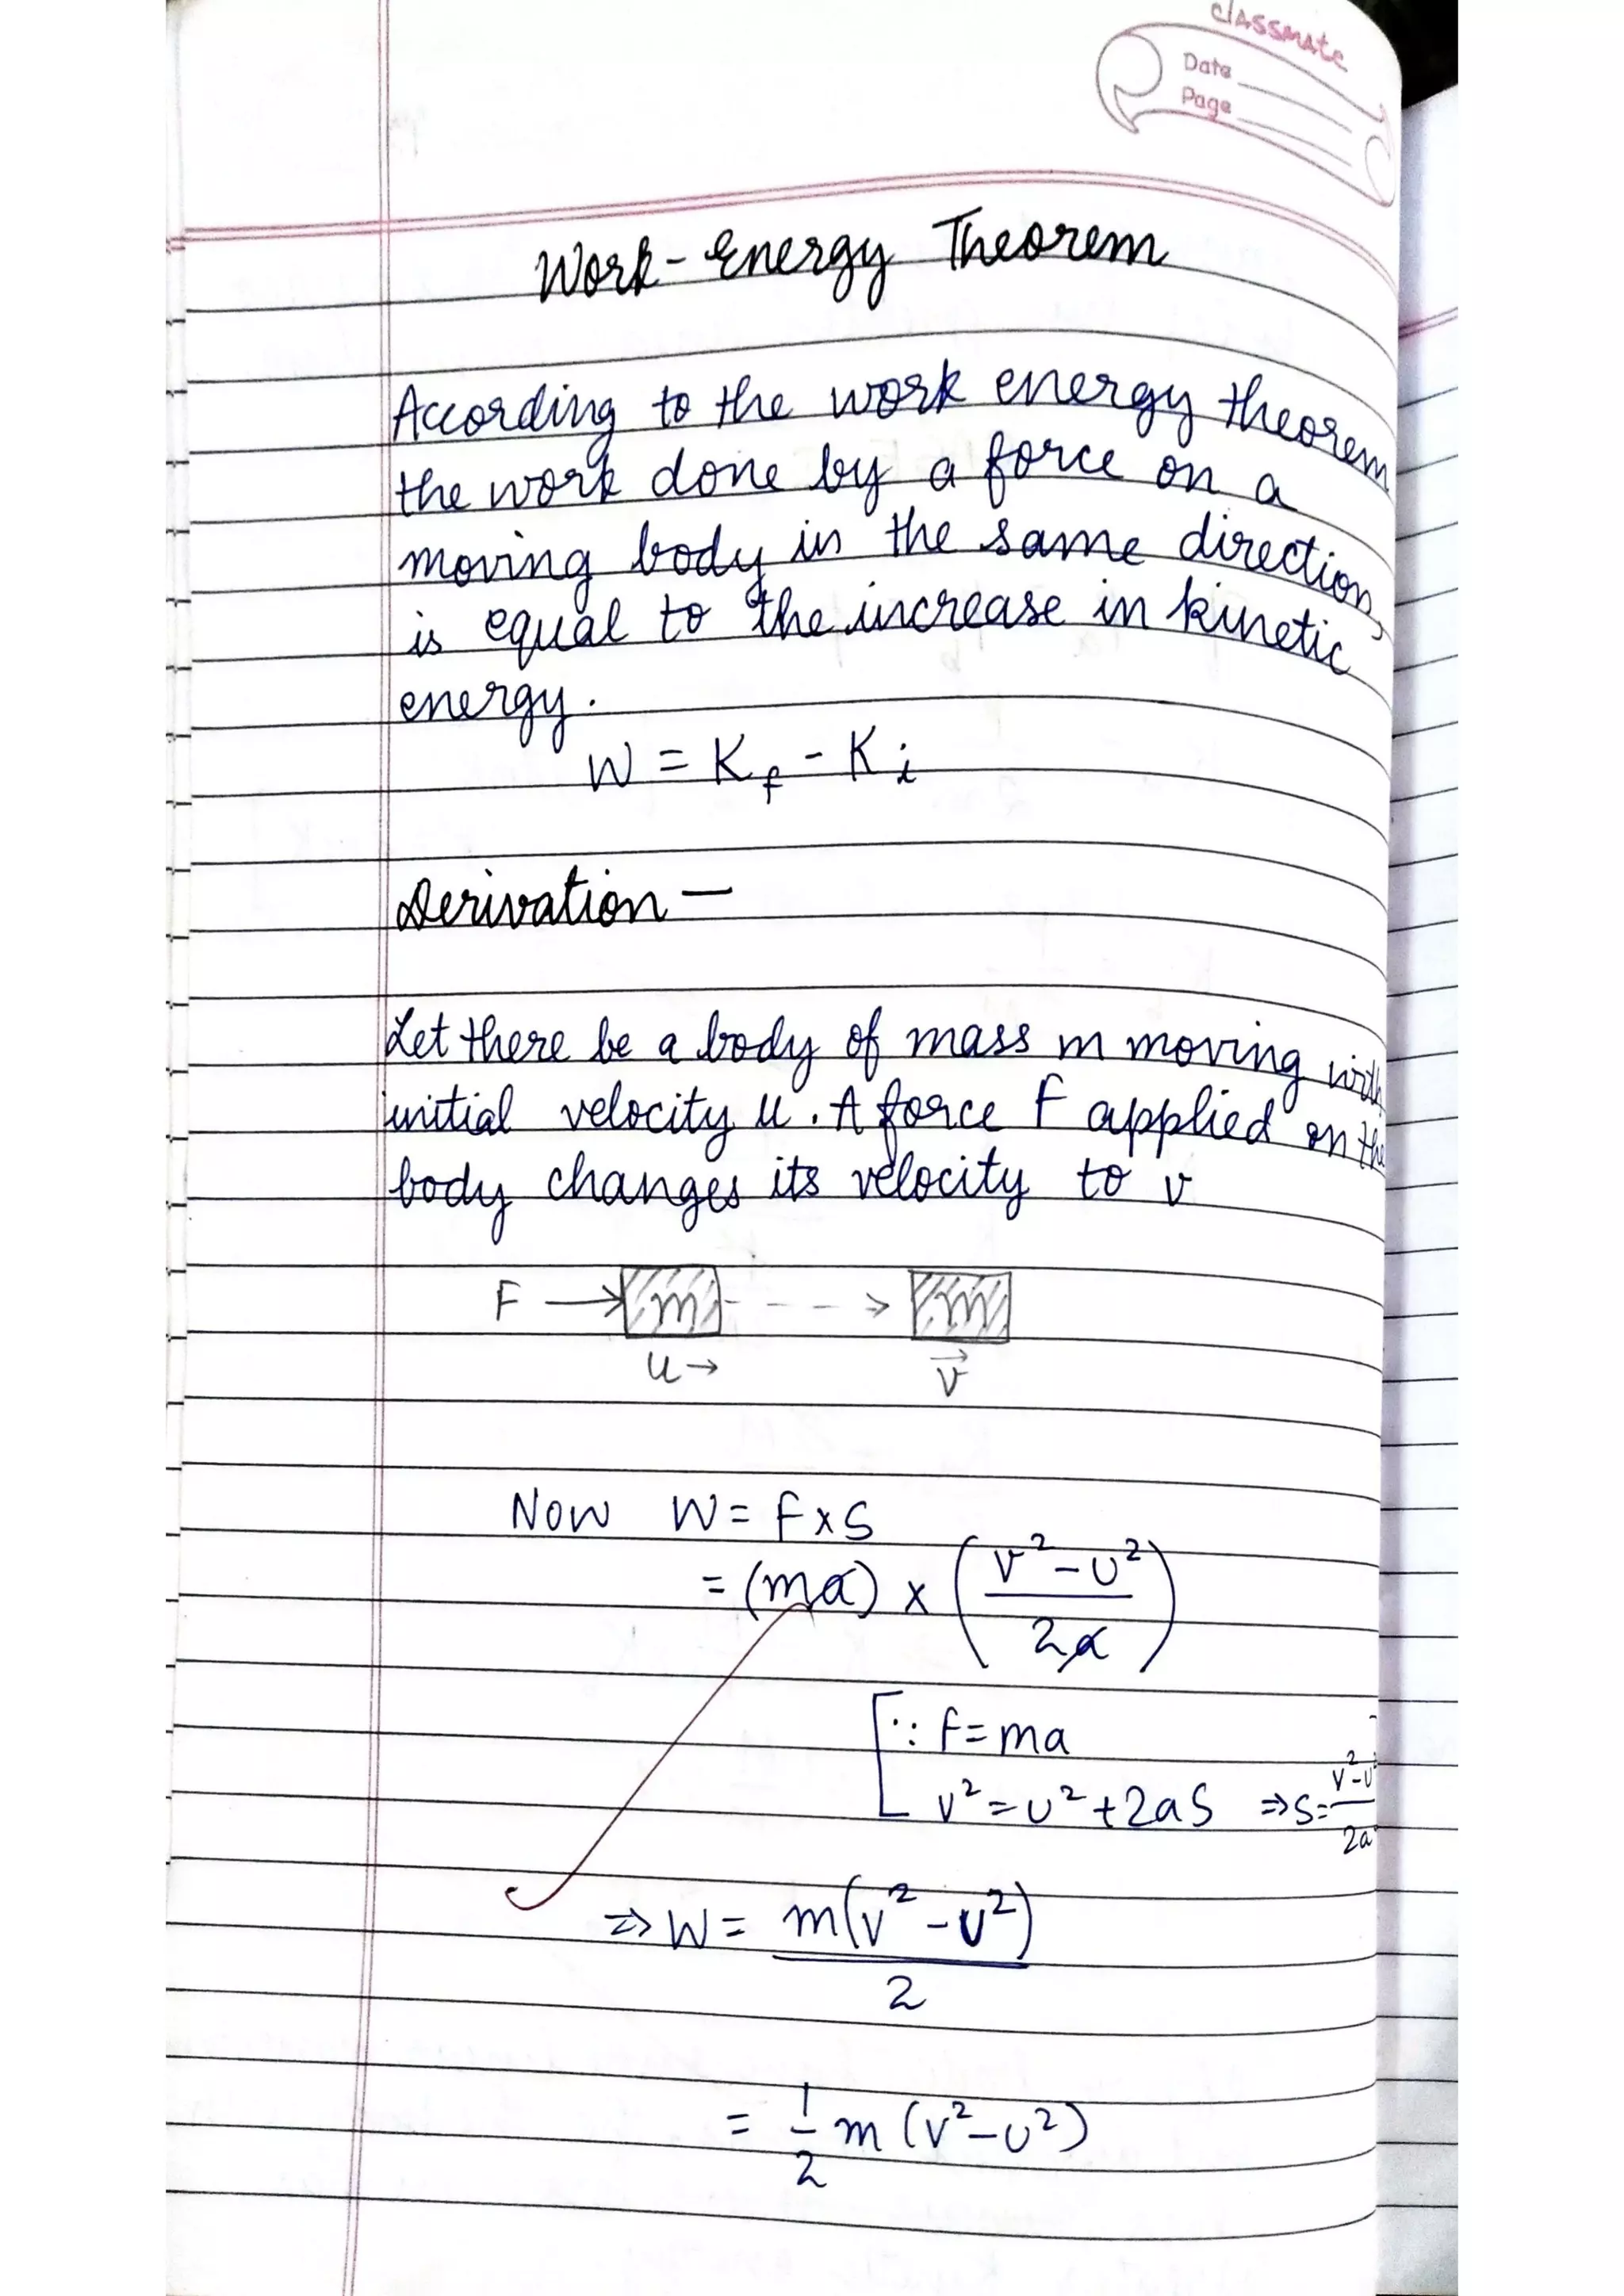 classmate
Date
Page
Work-Energy Theorem
According to the work energy theorem
the work done by a force on a
moving body in the same direction,
is equal to the increase in kinetic
energy.
W = K_f - K_i
Derivation —
Let there be a body of mass m moving with
initial velocity u. A force F applied on the
body changes its velocity to v
F → m - - - > m
u→ v⃗
Now W = F × S
= (ma) × ( (v² - u²) / 2a )
[ ∵ F = ma
v² = u² + 2aS ⇒ S = (v² - u²) / 2a
⇒ W = m(v² - u²) / 2
= 1/2 m (v² - u²)